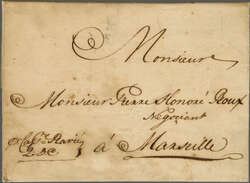 Monsieur
Monsieur Pierre Honoré Roux
Négociant
à Marseille